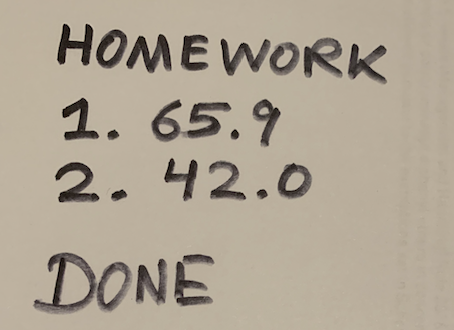 HOMEWORK
1. 65.9
2. 42.0
DONE